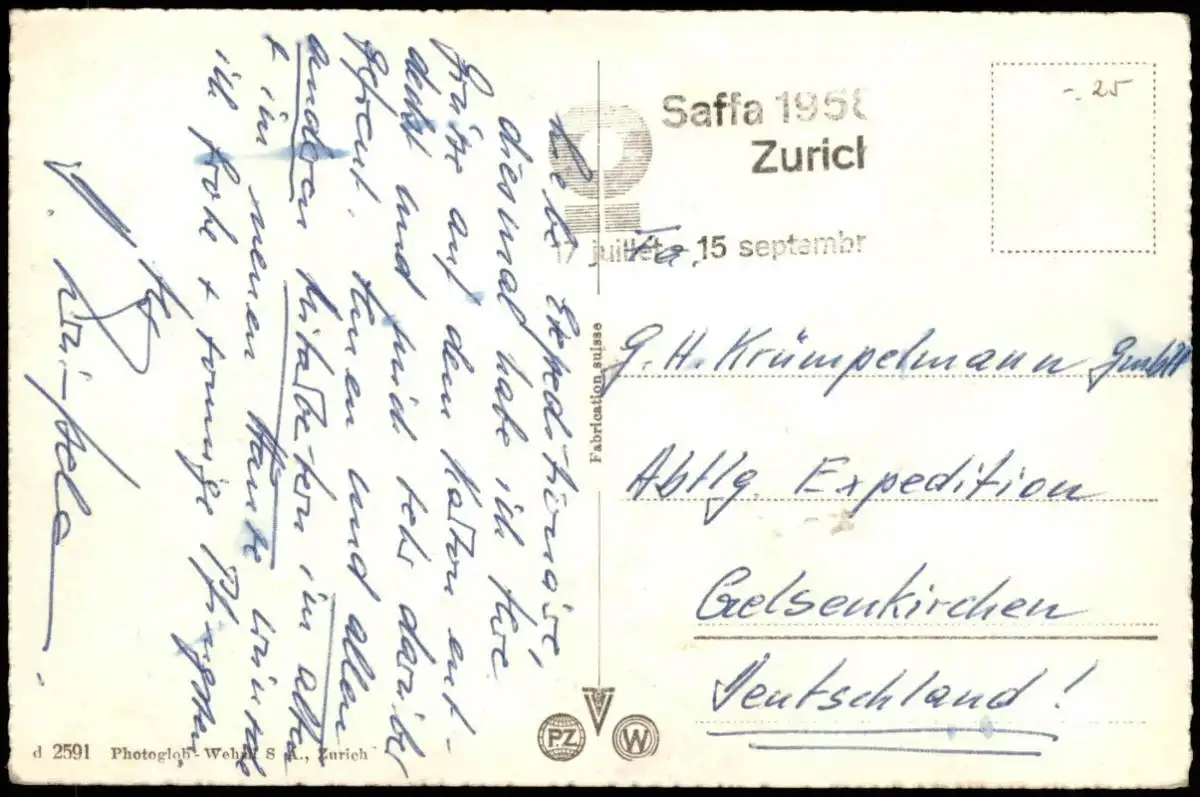 Liebe Expeditionäre,
diesmal habe ich Ihre
Grüße auf dem Karton ent-
deckt und mich sehr darüber
gefreut. Ihnen und allen
anderen Mitarbeitern im alten
+ im neuen Hause wünsche
ich frohe + sonnige Pfingsten
Saffa 1958
Zurich
17 juillet - 15 septembr
-.25
Fa.
G. H. Krümpelmann GmbH
Abtlg. Expedition
Gelsenkirchen
Deutschland!
Fabrication suisse
d 2591 Photoglob-Wehrli S A., Zurich
PZ
W